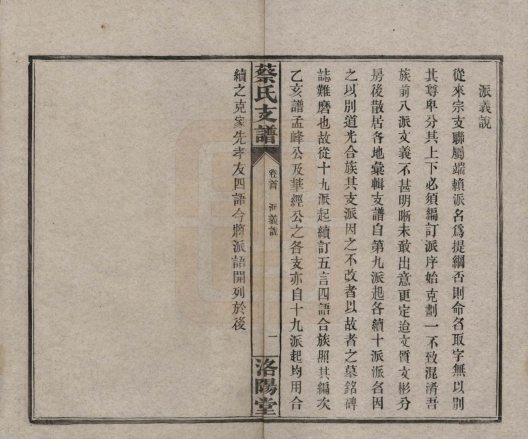 派義說
從來宗支聯屬端賴派名爲提綱否則命名取字無以別
其尊卑分其上下必須編訂派序始克劃一不致混淆吾
族前八派文義不甚明晰未敢出意更定迨文質文彬分
房後散居各地彙輯支譜自第九派起各續十派派名因
之以別道光合族其支派因之不改者以故者之墓銘碑
誌難磨也故從十九派起續訂五言四語合族照其編次
乙亥譜孟峰公及華經公之各支亦自十九派起均用合
蔡氏支譜
卷首 派義說
一
洛陽堂
續之克家先孝友四語今將派語開列於後